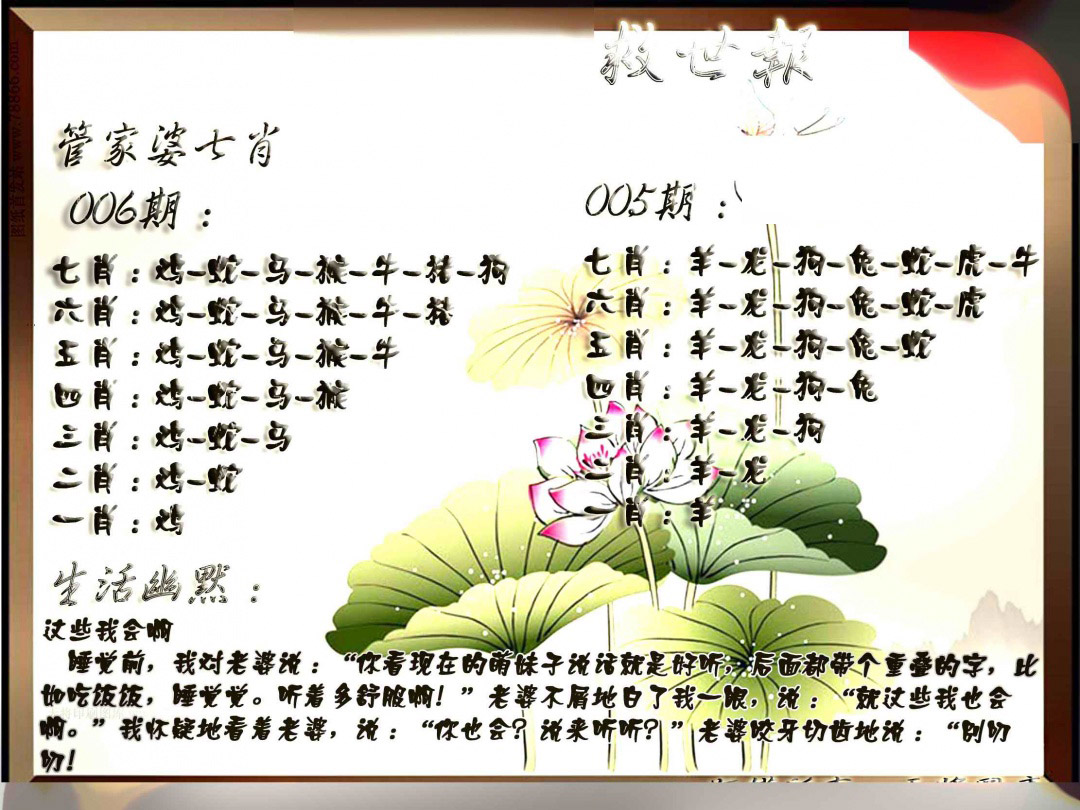 救世報
管家婆七肖
006期：
七肖：鸡-蛇-马-猴-牛-猪-狗
六肖：鸡-蛇-马-猴-牛-猪
五肖：鸡-蛇-马-猴-牛
四肖：鸡-蛇-马-猴
三肖：鸡-蛇-马
二肖：鸡-蛇
一肖：鸡
005期：
七肖：羊-龙-狗-兔-蛇-虎-牛
六肖：羊-龙-狗-兔-蛇-虎
五肖：羊-龙-狗-兔-蛇
四肖：羊-龙-狗-兔
三肖：羊-龙-狗
二肖：羊-龙
一肖：羊
生活幽默：
这些我会啊
睡觉前，我对老婆说：“你看现在的萌妹子说话就是好听，后面都带个重叠的字，比
如吃饭饭，睡觉觉。听着多舒服啊！”老婆不屑地白了我一眼，说：“就这些我也会
啊。”我怀疑地看着老婆，说：“你也会？说来听听？”老婆咬牙切齿地说：“别叨
叨！
www.78866.com